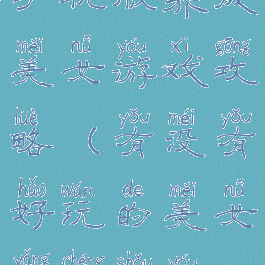 měi nǚ yóu xì gōng
美女游戏攻
lüè yǒu méi yǒu
略(有没有
hǎo wán de měi nǚ
好玩的美女
yǎng chéng shǒu yóu